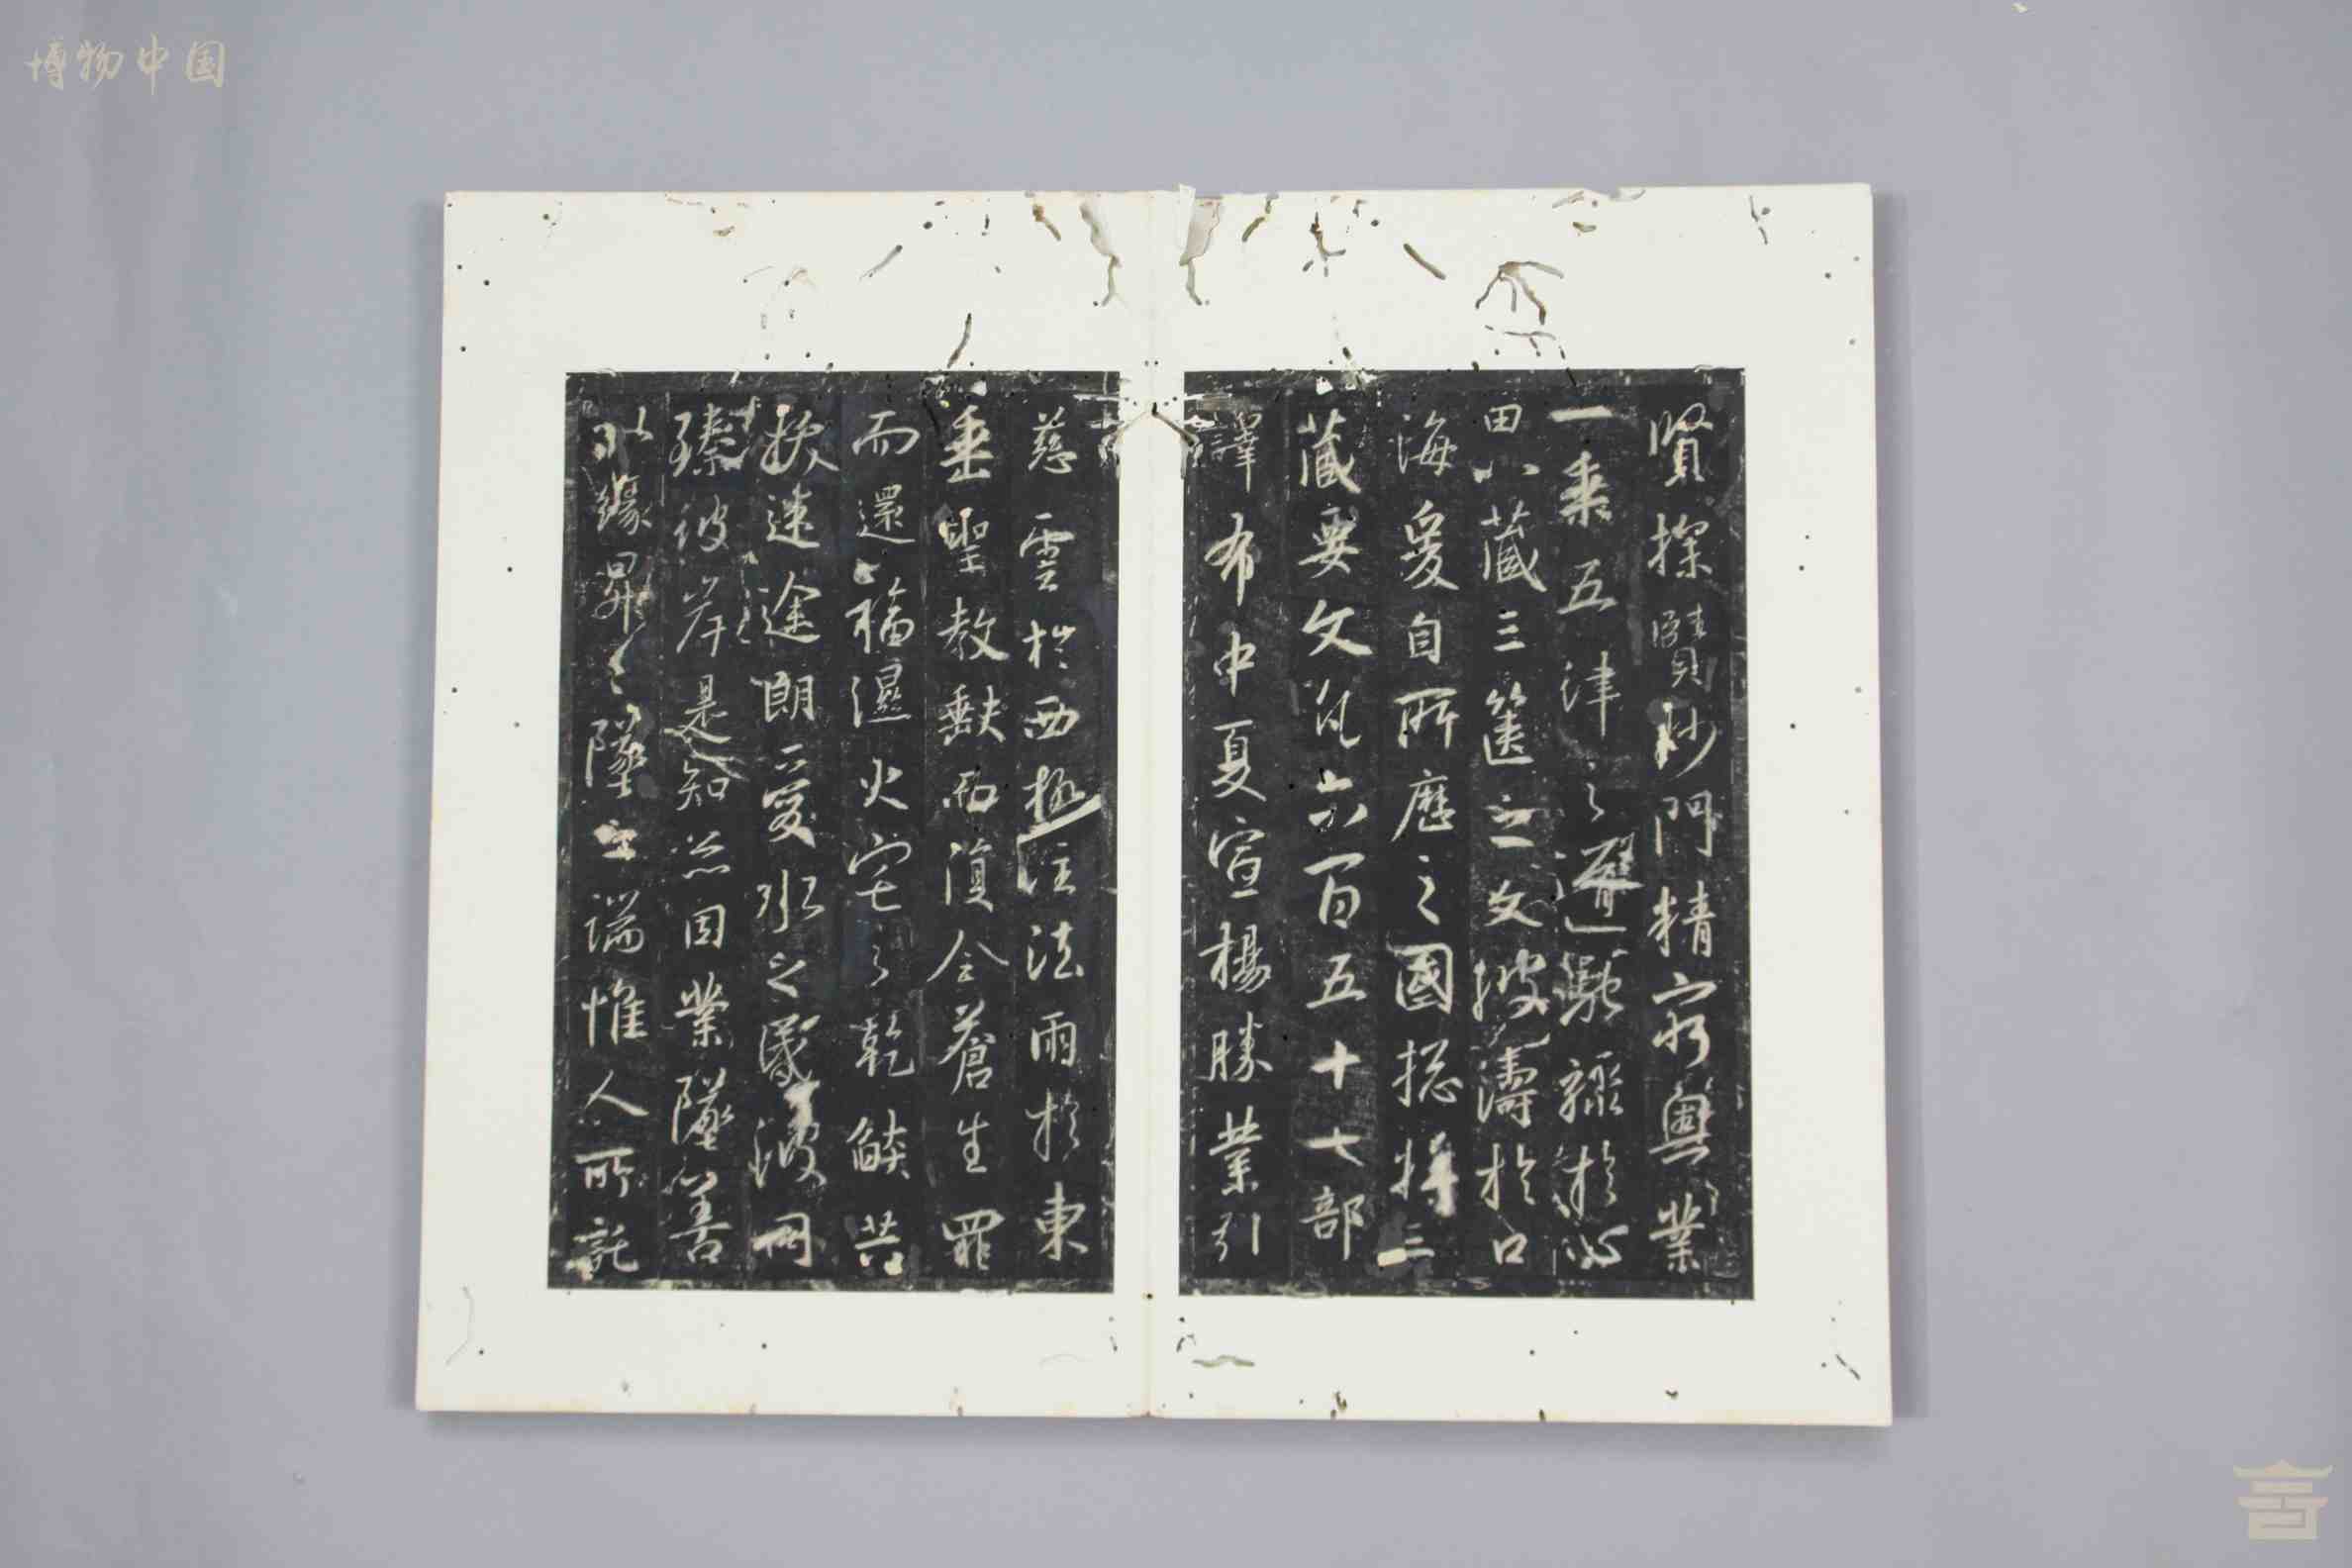 博物中国
賢探賾妙門精窮奧業
一乘五律之道馳驟於心
田八藏三篋之文波濤於口
海爰自所歷之國揔將三
藏要文凡六百五十七部
譯布中夏宣楊勝業引
慈雲於西極注法雨於東
垂聖教缺而復全蒼生罪
而還福濕火宅之乾燄共
拔迷途朗愛水之昏波同
臻彼岸是知惡因業墜善
以緣昇昇墜之端惟人所託